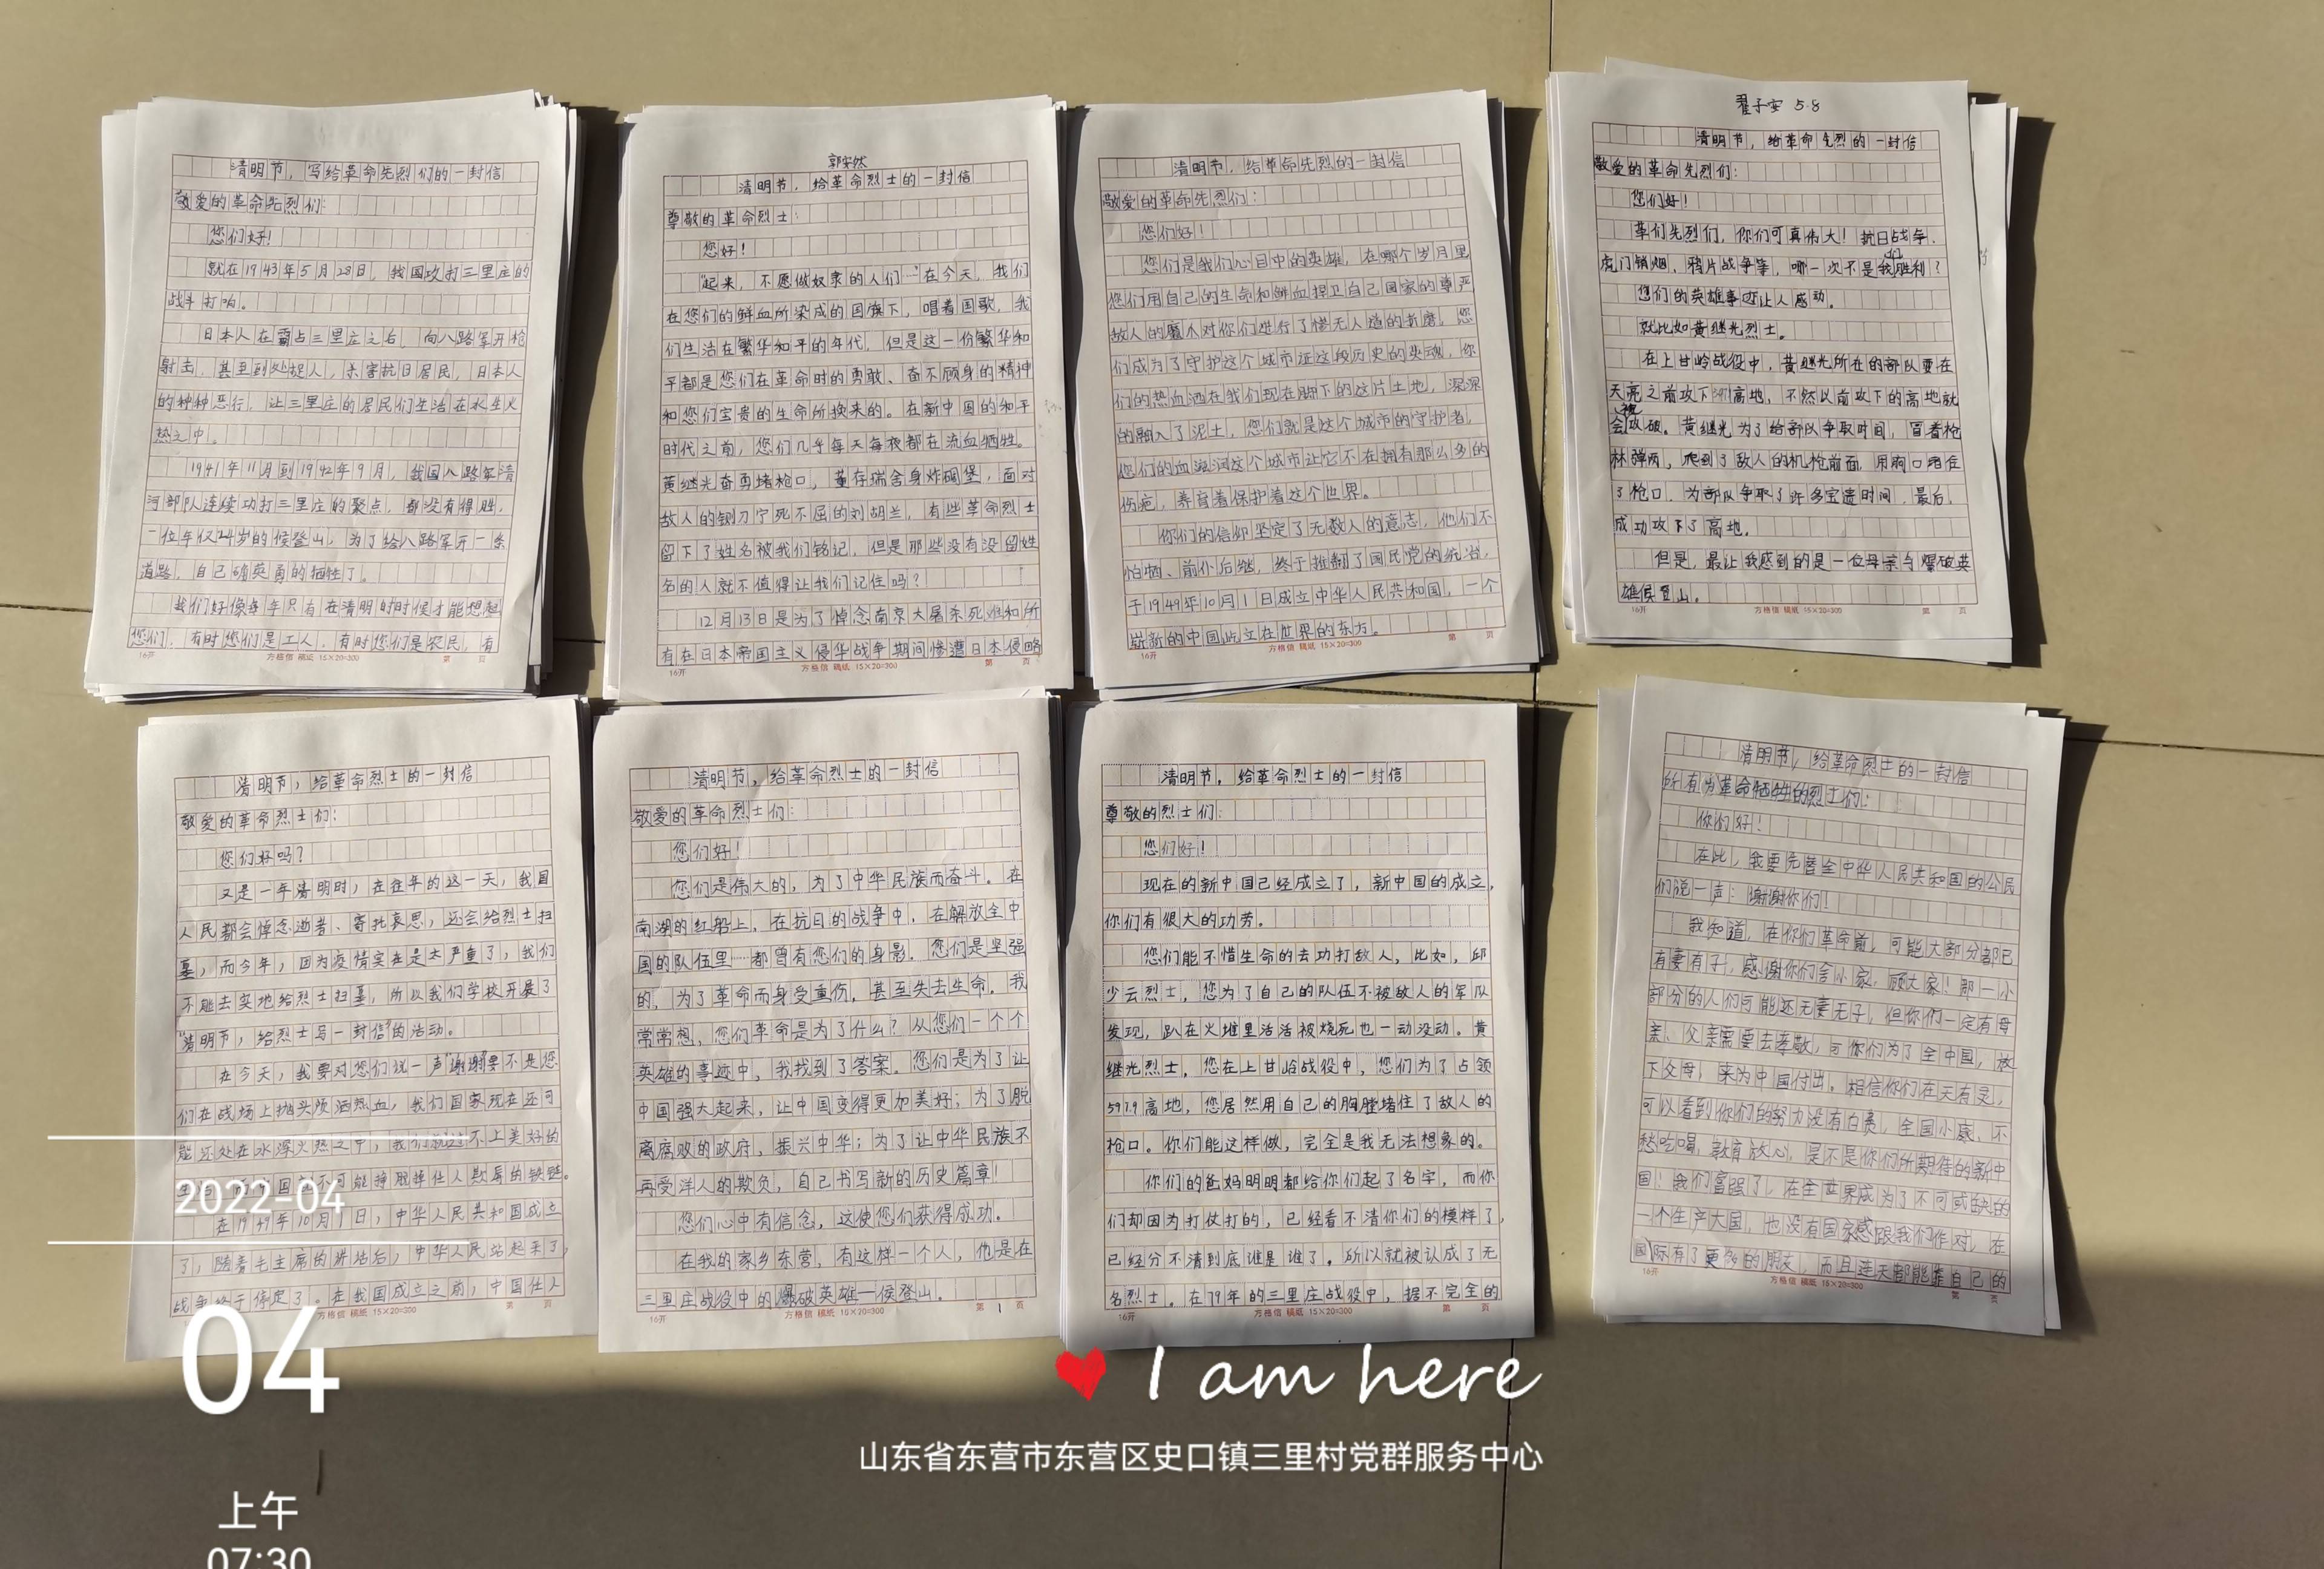 清明节，写给革命先烈们的一封信
敬爱的革命先烈们：
您们好！
就在1943年5月28日，我国攻打三里庄的
战斗打响。
日本人在霸占三里庄之后，向八路军开枪
射击，甚至到处捉人，杀害抗日居民，日本人
的种种恶行，让三里庄的居民们生活在水生火
热之中。
1941年11月到1942年9月，我国八路军清
河部队连续功打三里庄的聚点，都没有得胜，
一位年仅24岁的候登山，为了给八路军开一条
道路，自己确英勇的牺牲了。
我们好像每年只有在清明时时候才能想起
您们，有时您们是工人，有时您们是农民，有
16开 方格信 稿纸 15×20=300 第 页
郭安然
清明节，给革命烈士的一封信
尊敬的革命烈士：
您好！
“起来，不愿做奴隶的人们…”在今天，我们
在您们的鲜血所染成的国旗下，唱着国歌，我
们生活在繁华和平的年代，但是这一份繁华和
平都是您们在革命时的勇敢、奋不顾身的精神
和您们宝贵的生命所换来的。在新中国的和平
时代之前，您们几乎每天每夜都在流血牺牲。
黄继光奋勇堵枪口，董存瑞舍身炸碉堡，面对
敌人的铡刀宁死不屈的刘胡兰，有些革命烈士
留下了姓名被我们铭记，但是那些没有没留姓
名的人就不值得让我们记住吗？
12月13日是为了悼念南京大屠杀死难和所
有在日本帝国主义侵华战争期间惨遭日本侵略
16开 方格信 稿纸 15×20=300 第 页
清明节，给革命先烈的一封信
敬爱的革命先烈们：
您们好！
您们是我们心目中的英雄，在哪个岁月里
您们用自己的生命和鲜血捍卫自己国家的尊严
敌人的魔爪对你们进行了惨无人道的折磨，您
们成为了守护这个城市证这段历史的英魂，你
们的热血洒在我们现在脚下的这片土地，深深
的融入了泥土，您们就是这个城市的守护者，
您们的血滋润这个城市让它不在拥有那么多的
伤疤，养育着保护着这个世界。
你们的信仰坚定了无数人的意志，他们不
怕牺、前仆后继，终于推翻了国民党的统治，
于1949年10月1日成立中华人民共和国，一个
崭新的中国屹立在世界的东方。
16开 方格信 稿纸 15×20=300 第 页
翟子安 5.8
清明节，给革命先烈的一封信
敬爱的革命先烈们：
您们好！
革们先烈们，你们可真伟大！抗日战争、
虎门销烟、鸦片战争等，哪一次不是我们胜利？
您们的英雄事迹让人感动。
就比如黄继光烈士。
在上甘岭战役中，黄继光所在的部队要在
天亮之前攻下597.9高地，不然以前攻下的高地就
会被攻破。黄继光为了给部队争取时间，冒着枪
林弹雨，爬到了敌人的机枪前面，用胸口堵住
了枪口，为部队争取了许多宝遗时间，最后，
成功攻下了高地。
但是，最让我感到的是一位母亲与爆破英
雄侯登山。
16开 方格信 稿纸 15×20=300 第 页
清明节，给革命烈士的一封信
敬爱的革命烈士们：
您们好吗？
又是一年清明时，在往年的这一天，我国
人民都会悼念逝者、寄托哀思，还会给烈士扫
墓，而今年，因为疫情实在是太严重了，我们
不能去实地给烈士扫墓，所以我们学校开展了
“清明节，给烈士写一封信”的活动。
在今天，我要对您们说一声“谢谢”要不是您
们在战场上抛头颅洒热血，我们国家现在还可
能还处在水深火热之中，我们就过不上美好的
不可能挣脱掉任人欺辱的铁链。
在1949年10月1日，中华人民共和国成立
了，随着毛主席的讲话后，中华人民站起来了，
战争终于停定了。在我国成立之前，中国任人
方格信 稿纸 15×20=300 第 页
清明节，给革命烈士的一封信
敬爱的革命烈士们：
您们好！
您们是伟大的，为了中华民族而奋斗。在
南湖的红船上，在抗日的战争中，在解放全中
国的队伍里……都曾有您们的身影。您们是坚强
的，为了革命而身受重伤，甚至失去生命，我
常常想，您们革命是为了什么？从您们一个个
英雄的事迹中，我找到了答案。您们是为了让
中国强大起来，让中国变得更加美好；为了脱
离腐败的政府，振兴中华；为了让中华民族不
再受洋人的欺负，自己书写新的历史篇章！
您们心中有信念，这使您们获得成功。
在我的家乡东营，有这样一个人，他是在
三里庄战役中的爆破英雄—侯登山。
16开 方格信 稿纸 15×20=300 第 1 页
清明节，给革命烈士的一封信
尊敬的烈士们：
您们好！
现在的新中国已经成立了，新中国的成立，
你们有很大的功劳。
您们能不惜生命的去功打敌人，比如，邱
少云烈士，您为了自己的队伍不被敌人的军队
发现，趴在火堆里活活被烧死也一动没动。黄
继光烈士，您在上甘岭战役中，您们为了占领
597.9高地，您居然用自己的胸膛堵住了敌人的
枪口。你们能这样做，完全是我无法想象的。
你们的爸妈明明都给你们起了名字，而你
们却因为打仗打的，已经看不清你们的模样了，
已经分不清到底谁是谁了。所以就被认成了无
名烈士。在79年的三里庄战役中，据不完全的
16开 方格信 稿纸 15×20=300 第 页
清明节，给革命烈士的一封信
所有为革命牺牲的烈士们：
你们好！
在此，我要先替全中华人民共和国的公民
们说一声：谢谢你们！
我知道，在你们革命前，可能大部分都已
有妻有子，感谢你们舍小家，顾大家！那一小
部分的人们可能还无妻无子，但你们一定有母
亲、父亲需要去孝敬，可你们为了全中国，放
下父母，来为中国付出。相信你们在天有灵，
可以看到你们的努力没有白费，全国小康、不
愁吃喝，教育放心，是不是你们所期待的新中
国！我们富强了，在全世界成为了不可或缺的
一个生产大国，也没有国家感跟我们作对，在
国际有了更多的朋友，而且连天都能靠自己的
16开 方格信 稿纸 15×20=300 第 页
2022-04
04
上午
07:30
I am here
山东省东营市东营区史口镇三里村党群服务中心